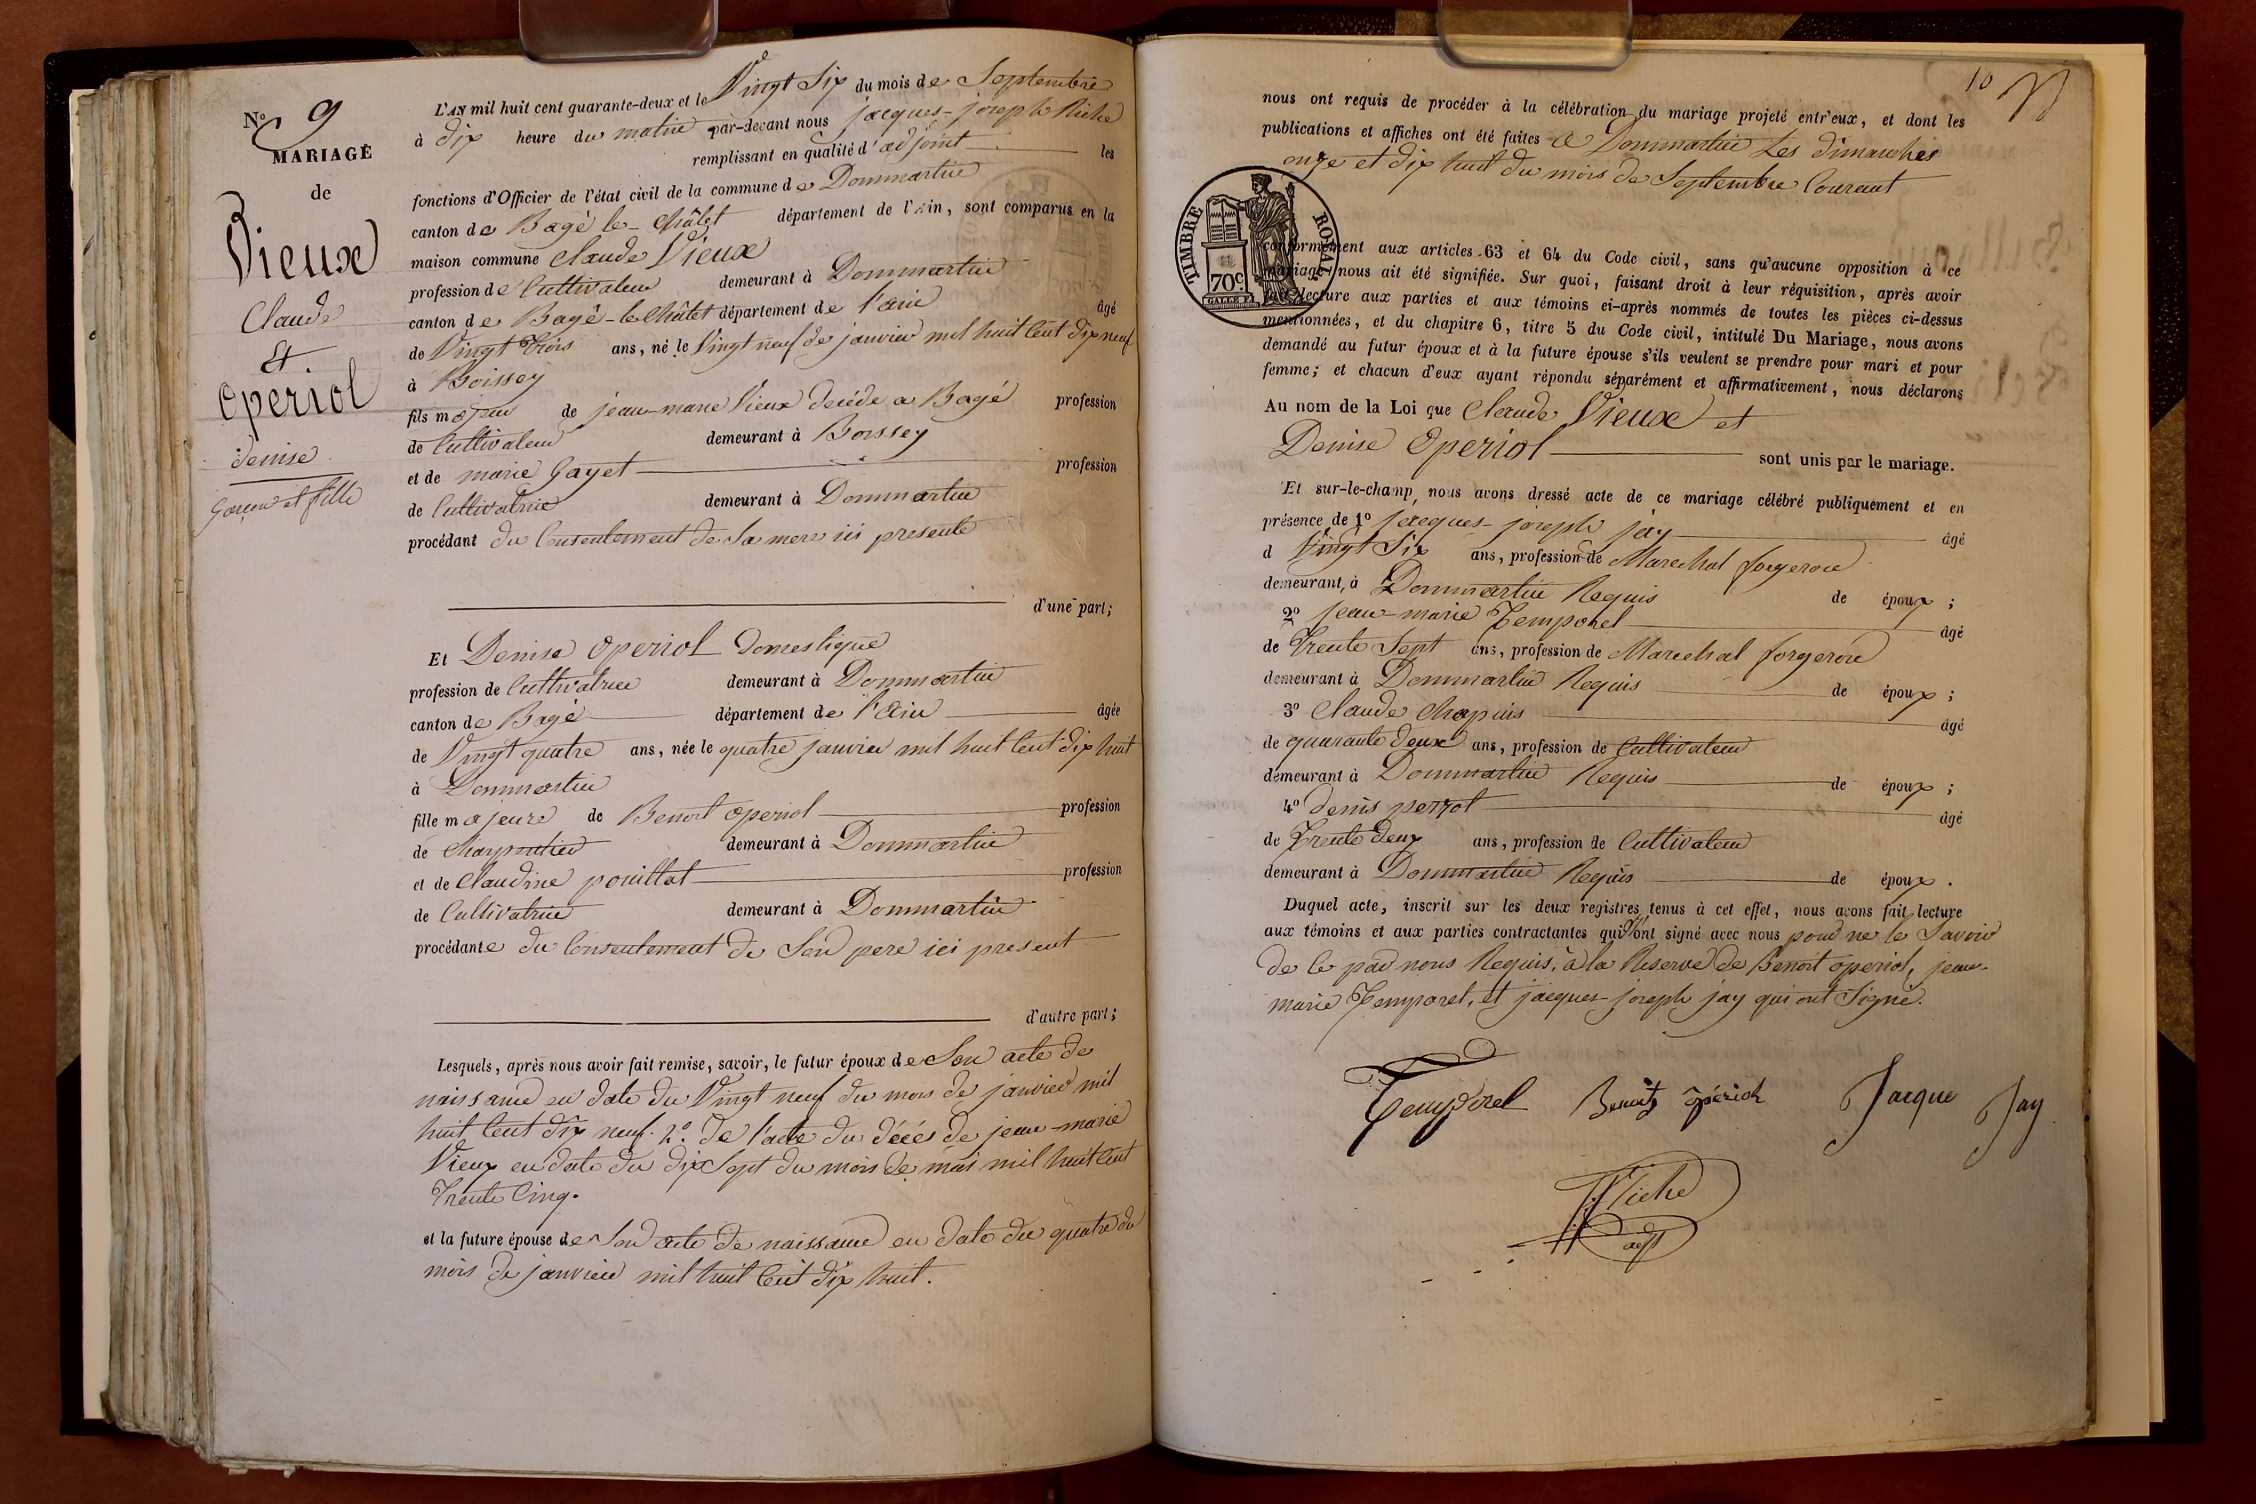 No 9
MARIAGE
de
Vieux
Claude
Et
Operiol
denise
Garçon et fille
L'AN mil huit cent quarante-deux et le Vingt Six du mois de Septembre
à dix heure du matin par-devant nous jacques-joseph Riche
remplissant en qualité d'adjoint les
fonctions d'Officier de l'état civil de la commune de Dommartin
canton de Bagé le-Châtel département de l'Ain, sont comparus en la
maison commune Claude Vieux
profession de Cultivateur demeurant à Dommartin
canton de Bagé-le Châtel département de l'ain âgé
de Vingt Trois ans, né le Vingt neuf de janvier mil huit Cent dix neuf
à Boissey
fils majeur de jean-marie Vieux décédé a Bagé profession
de Cultivateur demeurant à Boissey
et de marie Gayet profession
de Cultivatrice demeurant à Dommartin
procédant du Consentement de Sa mere ici presente
d'une part;
Et Denise Operiol Domestique
profession de Cultivatrice demeurant à Dommartin
canton de Bagé département de l'Ain âgée
de Vingt quatre ans, née le quatre janvier mil huit Cent dix huit
à Dommartin
fille majeure de Benoit Operiol profession
de Charpentier demeurant à Dommartin
et de Claudine pouillat profession
de Cultivatrice demeurant à Dommartin
procédante du Consentement de Son pere ici present
d'autre part;
Lesquels, après nous avoir fait remise, savoir, le futur époux de Son acte de
naissance en date du Vingt neuf du mois de janvier mil
huit Cent dix neuf. 2o. De l'acte du décés de jean-marie
Vieux en date du dix Sept du mois de mai mil huit Cent
Trente Cinq.
et la future épouse de Son acte de naissance en date du quatre du
mois de janvier mil huit Cent dix huit.
10
nous ont requis de procéder à la célébration du mariage projeté entr'eux, et dont les
publications et affiches ont été faites a Dommartin Les dimanches
onze et dix huit du mois de Septembre Courant
TIMBRE ROYAL
70 c.
conformément aux articles 63 et 64 du Code civil, sans qu'aucune opposition à ce
mariage nous ait été signifiée. Sur quoi, faisant droit à leur réquisition, après avoir
fait lecture aux parties et aux témoins ci-après nommés de toutes les pièces ci-dessus
mentionnées, et du chapitre 6, titre 5 du Code civil, intitulé Du Mariage, nous avons
demandé au futur époux et à la future épouse s'ils veulent se prendre pour mari et pour
femme; et chacun d'eux ayant répondu séparément et affirmativement, nous déclarons
Au nom de la Loi que Claude Vieux et
Denise Operiol sont unis par le mariage.
Et sur-le-champ, nous avons dressé acte de ce mariage célébré publiquement et en
présence de 1o jacques-joseph jay âgé
d Vingt Six ans, profession de Marechal forgeron
demeurant à Dommartin Requis de époux;
2o jean-marie Temporel âgé
de Trente Sept ans, profession de Marechal forgeron
demeurant à Dommartin Requis de époux;
3o Claude Chapuis âgé
de quarante deux ans, profession de Cultivateur
demeurant à Dommartin Requis de époux;
4o denis perrot âgé
de Trente Deux ans, profession de Cultivateur
demeurant à Dommartin Requis de époux.
Duquel acte, inscrit sur les deux registres tenus à cet effet, nous avons fait lecture
aux témoins et aux parties contractantes qui n'ont signé avec nous pour ne le Savoir
de Ce par nous Requis, à la Reserve de Benoit Operiol, jean-
marie Temporel, et jacques-joseph jay qui ont Signé.
Temporel Benoit opériol Jacque Jay
Riche
adjt